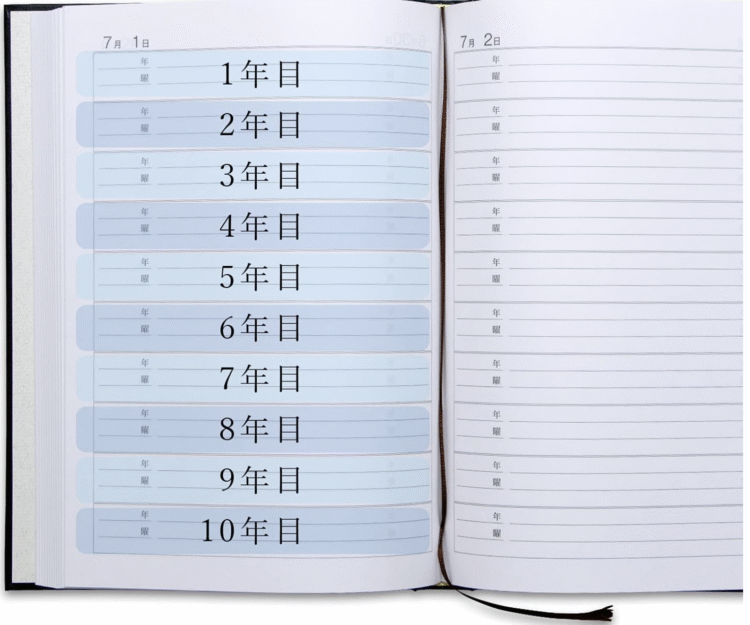 7月 1日
年
曜
1年目
年
曜
2年目
年
曜
3年目
年
曜
4年目
年
曜
5年目
年
曜
6年目
年
曜
7年目
年
曜
8年目
年
曜
9年目
年
曜
10年目
7月 2日
年
曜
年
曜
年
曜
年
曜
年
曜
年
曜
年
曜
年
曜
年
曜
年
曜